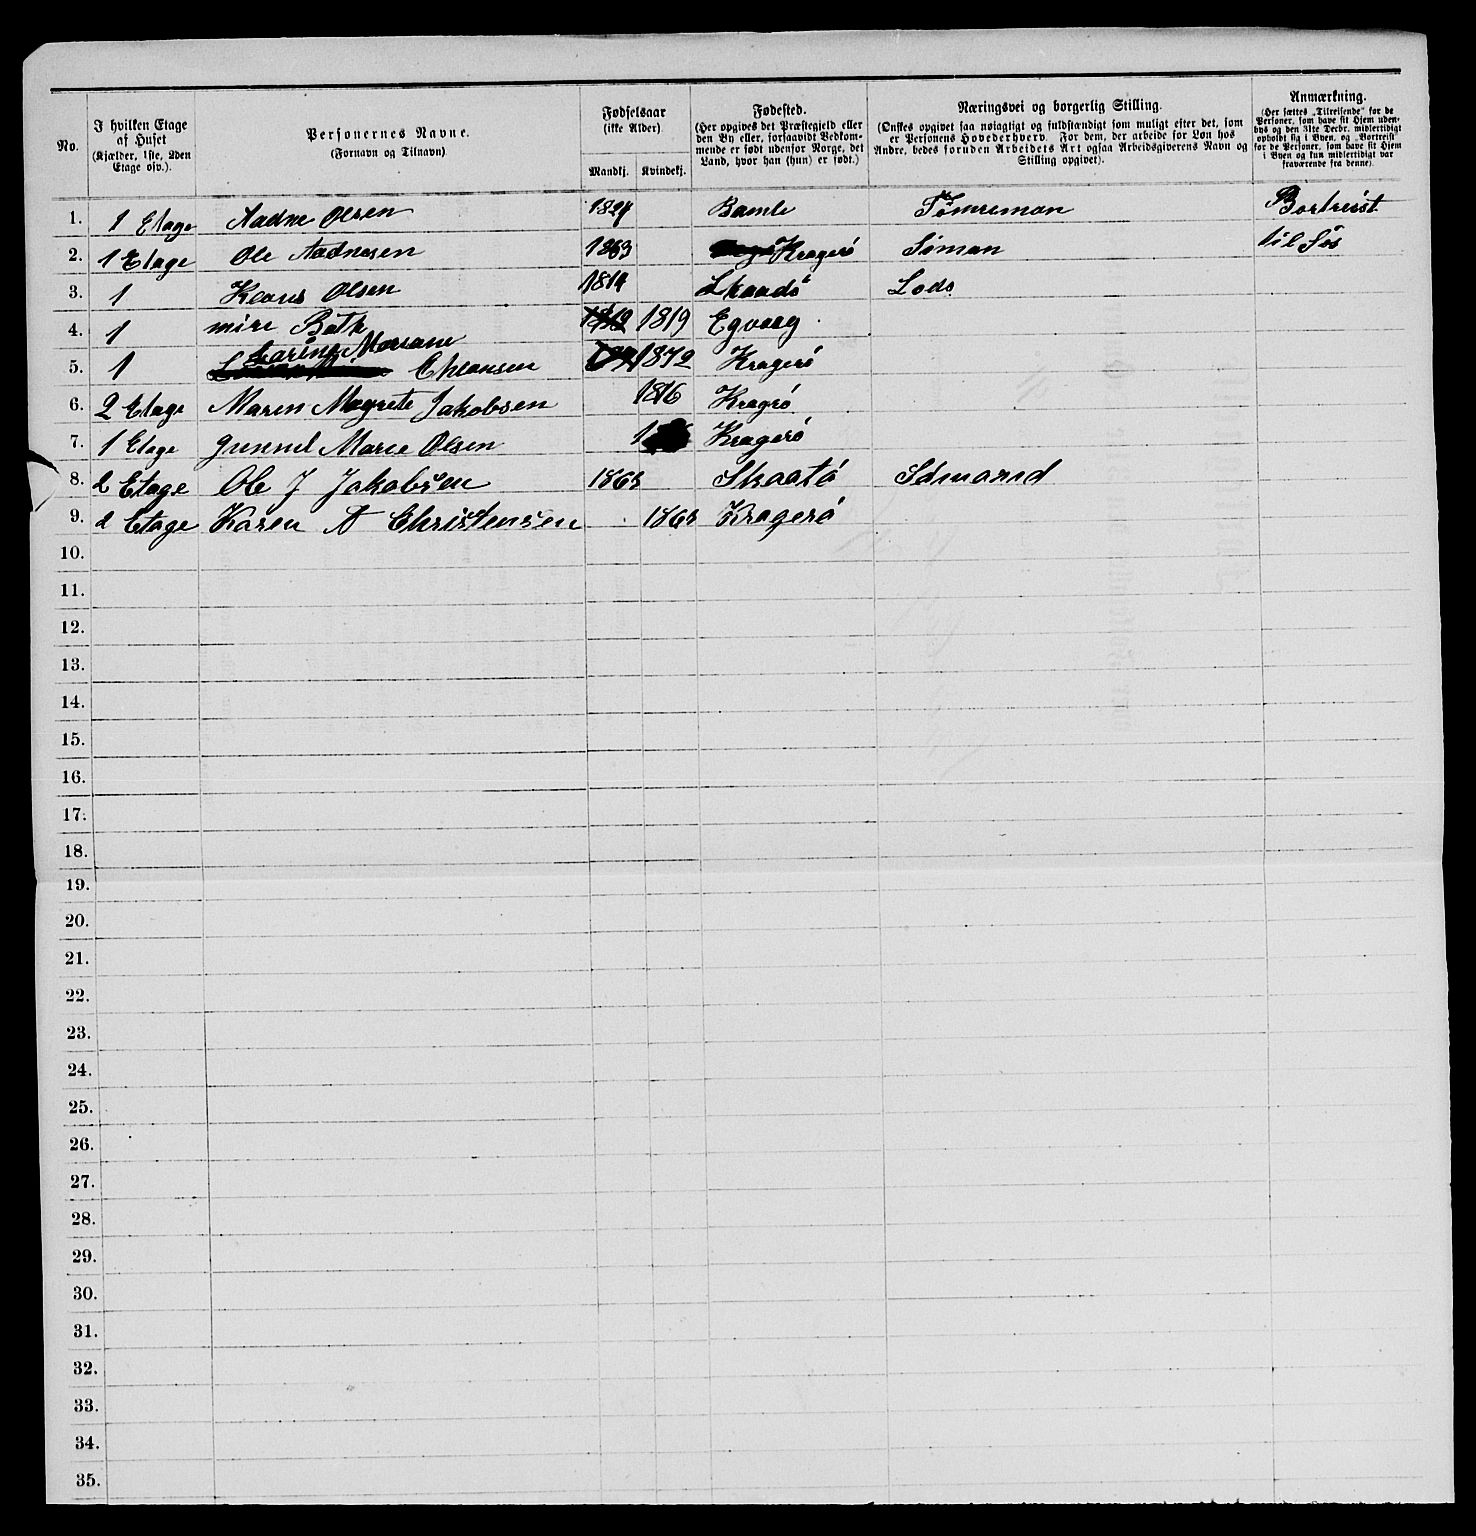 No.
I hvilken Etage af Huset (Kjælder, 1ste, 2den Etage osv.).
Personernes Navne. (Fornavn og Tilnavn)
Fødselsaar (ikke Alder)
Mandkj. Kvindekj.
Fødested. (Her opgives det Præstegjeld eller den By eller, forsaavidt Bedkommende er født udenfor Norge, det Land, hvor han (hun) er født.)
Næringsvei og borgerlig Stilling. (Ønskes opgivet saa nøiagtigt og fuldstændigt som muligt efter det, som er Personens Hovederhverv. For dem, der arbeide for Løn hos Andre, bedes foruden Arbeidets Art ogsaa Arbeidsgiverens Navn og Stilling opgivet).
Anmærkning. (Her sættes „Tilreisende" for de Personer, som have sit Hjem udenbys og den 31te Decbr. midlertidigt opholdt sig i Byen, og „Bortreist" for de Personer, som have sit Hjem i Byen og kun midlertidigt var fraværende fra denne).
1. 1 Etage Aadne Olsen 1824 Bamle Tømreman Bortreist
2. 1 Etage Ole Aadnesen 1863 Kragerö Söman til Søs
3. 1 Klaus Olsen 1814 Skaadö Lods
4. 1 Bäth 1819
5. 1 Mariane 1872 Kragerö
6. 2 Etage Maren Magrete Jakobsen 1816 Kragrö
7. 1 Etage Gunnil Marie Olsen Kragerö
8. 2 Etage Ole J Jakobsen Skaatö Sömand
9. 2 Etage Karen A Christensen Kragerö
10.
11.
12.
13.
14.
15.
16.
17.
18.
19.
20.
21.
22.
23.
24.
25.
26.
27.
28.
29.
30.
31.
32.
33.
34.
35.